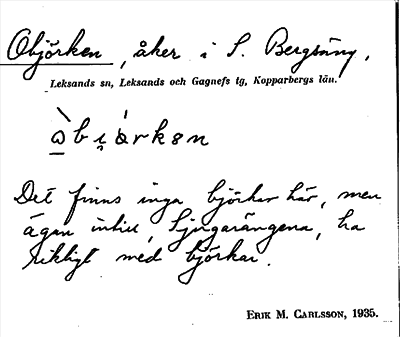 Objörken, åker i S. Bergsäng,
Leksands sn, Leksands och Gagnefs tg, Kopparbergs län.
Det finns inga björkar här, men
ägan intill, Ljugarängena, ha
riktigt med björkar.
ERIK M. CARLSSON, 1935.